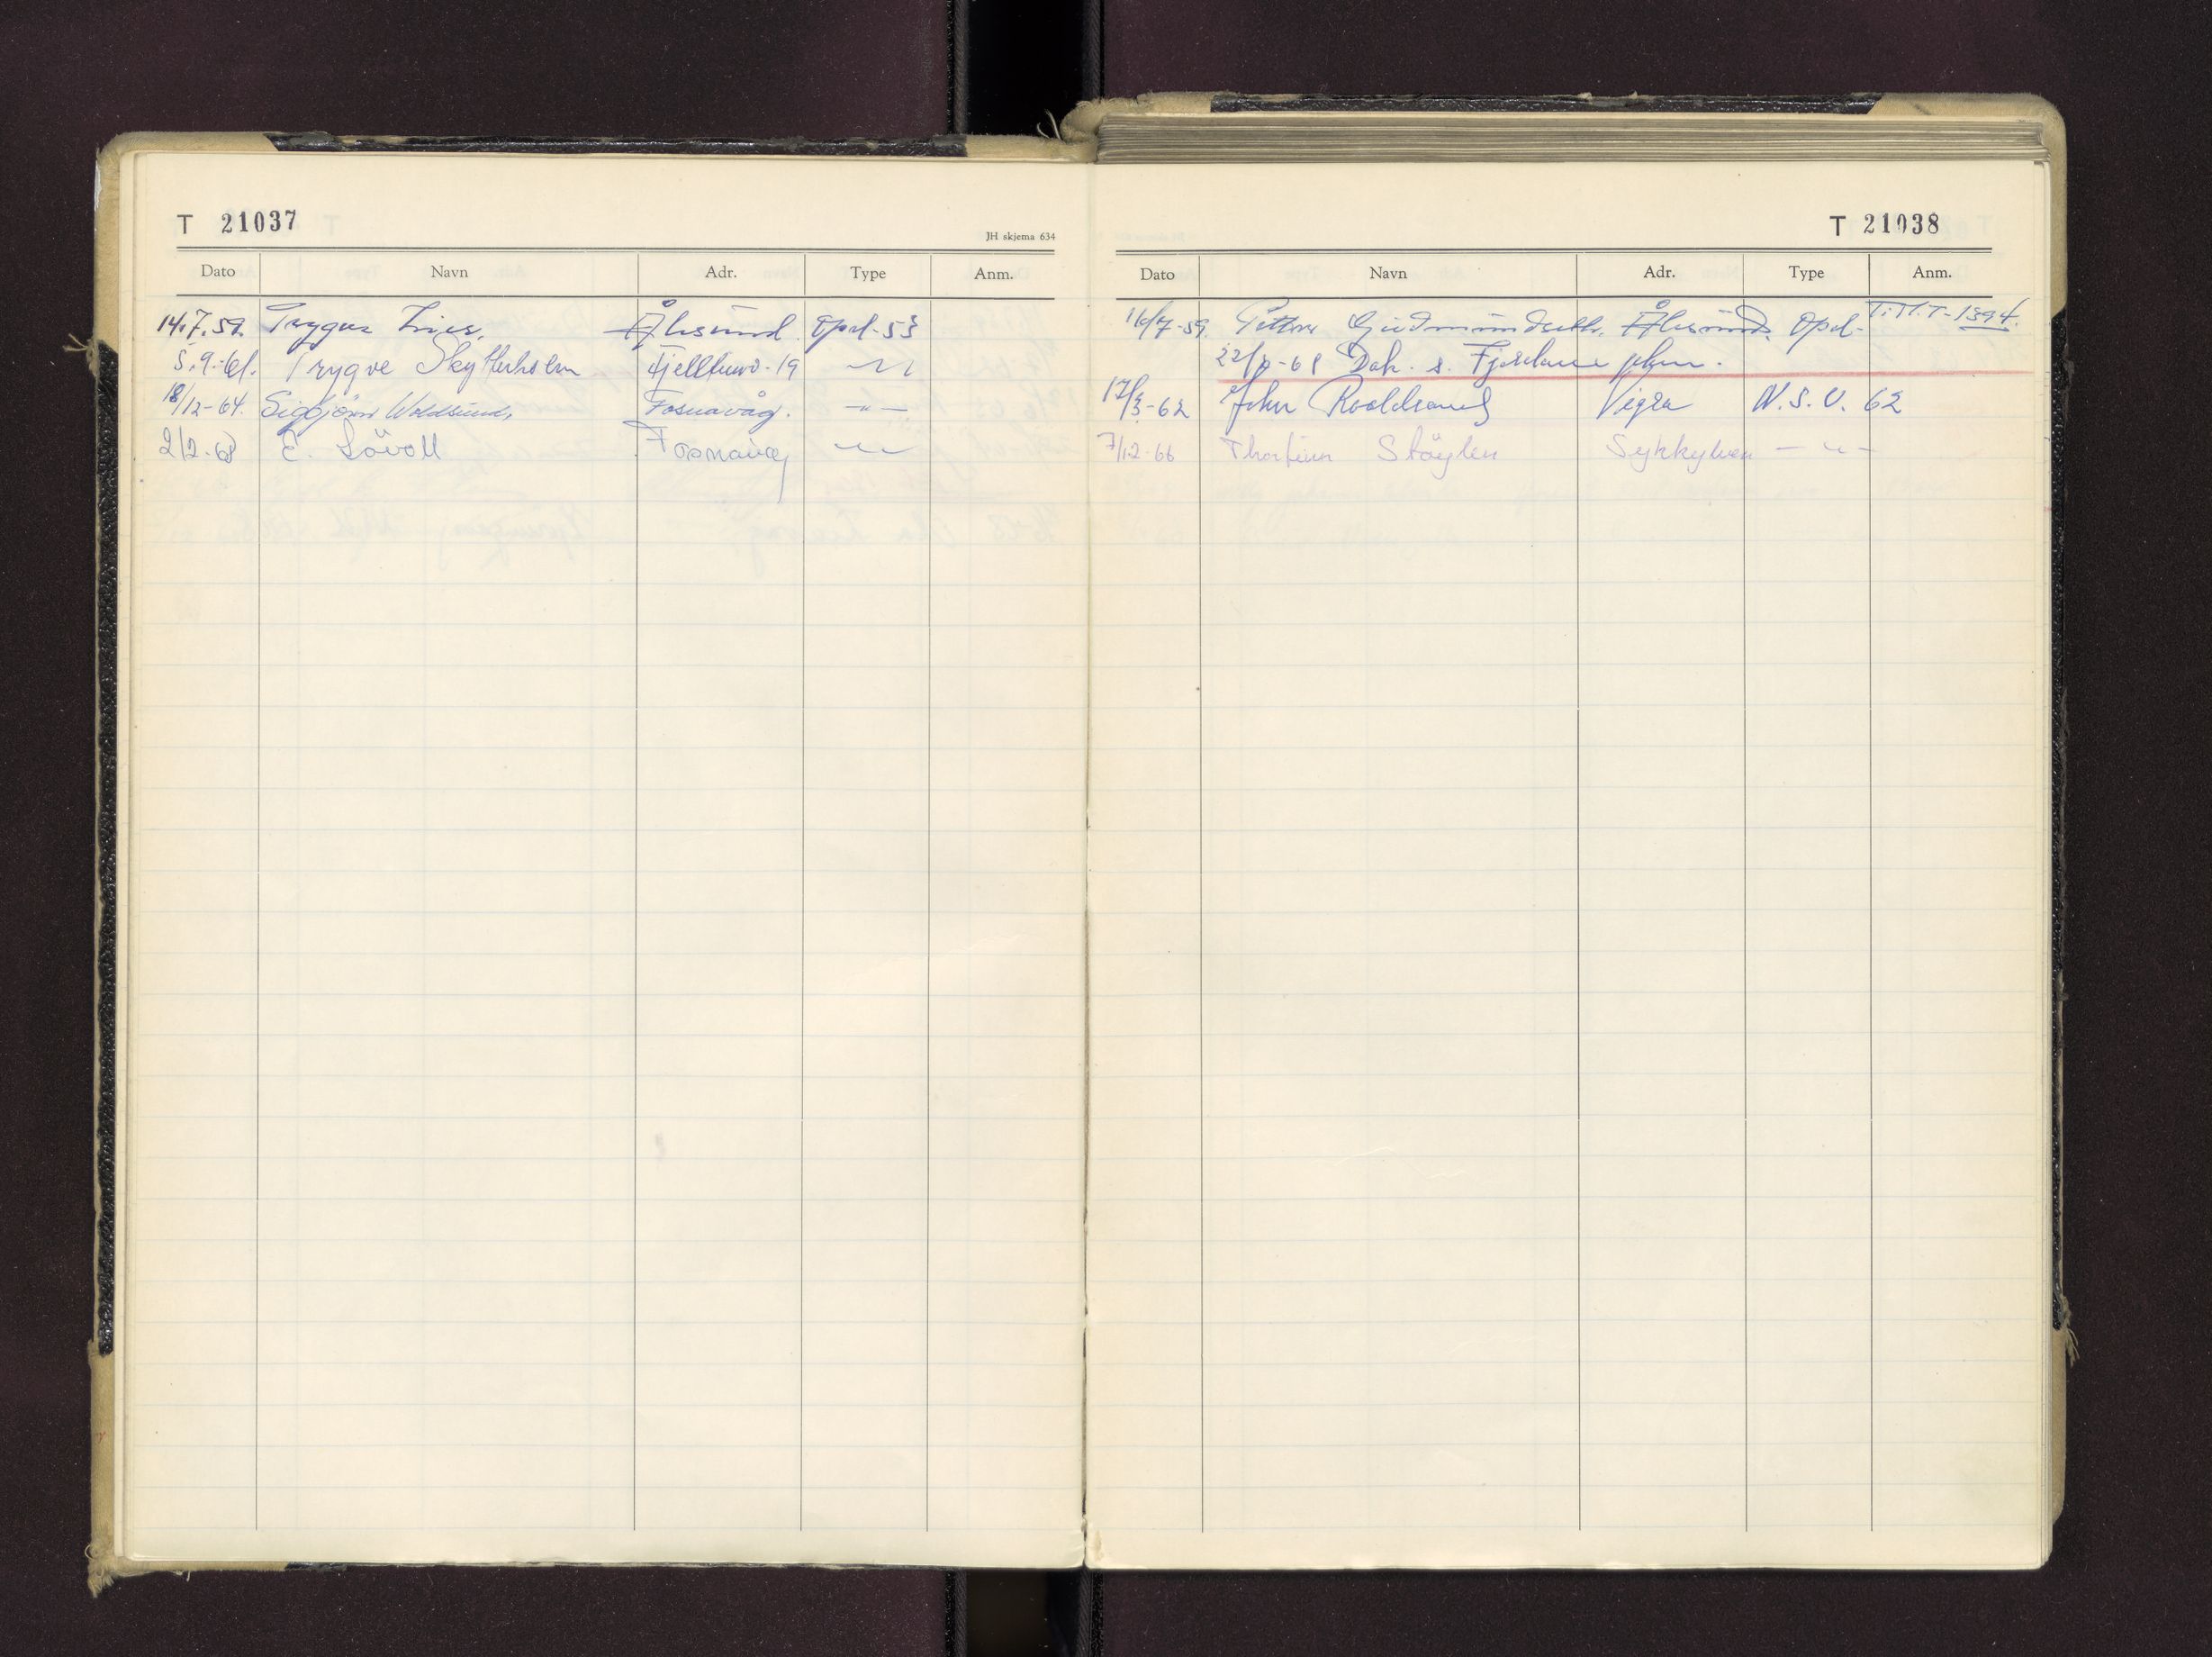 T 21037
JH skjema 634
Dato Navn Adr. Type Anm.
14.7.59. Trygve Ålesund. Opel-53
5.9-61. Trygve Skytterholm Fjelltunv. 19 -"-
18/12-64. Sigbjörn Woldsund, Fosnavåg. -"-
2/2-68 E. Lövoll Fosnavåg -"-
T 21038
Dato Navn Adr. Type Anm.
16/7-59. Petter Gudmundseth, Ålesund. Opel- T.M.T-1394.
-61 s. Fjordane
17/3-62 John Roaldsand Vigra N.S.U. 62
7/12-66 Thorfinn Stöylen Sykkylven -"-